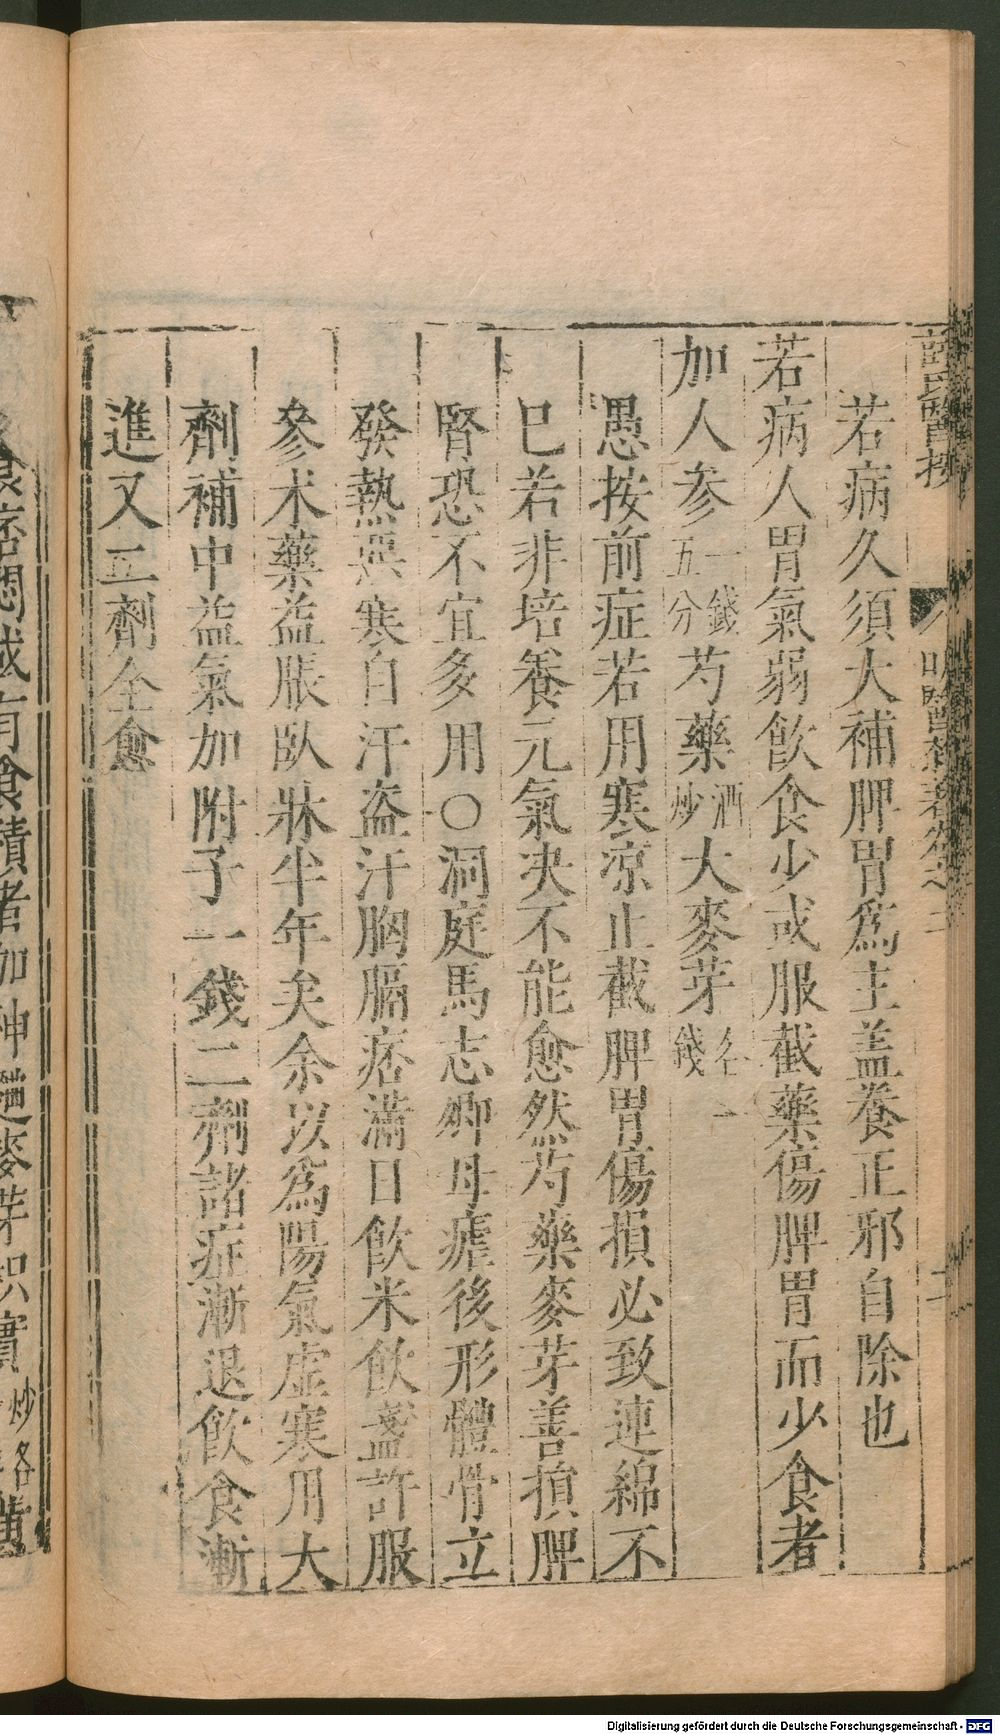 醫按
明醫雜著卷之二
二
若病久須大補脾胃爲主盖養正邪自除也
若病人胃氣弱飲食少或服截藥傷脾胃而少食者
加人参一錢五分芍藥酒炒大麥芽各一錢
愚按前症若用寒凉止截脾胃傷損必致連綿不
已若非培養元氣决不能愈然芍藥麥芽善損脾
腎恐不宜多用○洞庭馬志卿母瘧後形體骨立
發熱惡寒自汗盗汗胸膈痞滿日飲米飲盞許服
參术藥益脹臥牀半年矣余以爲陽氣虚寒用大
劑補中益氣加附子一錢二劑諸症漸退飲食漸
進又二劑全愈
痞悶或有食積者加神麯麥芽枳實炒各
Digitalisierung gefördert durch die Deutsche Forschungsgemeinschaft - DFG